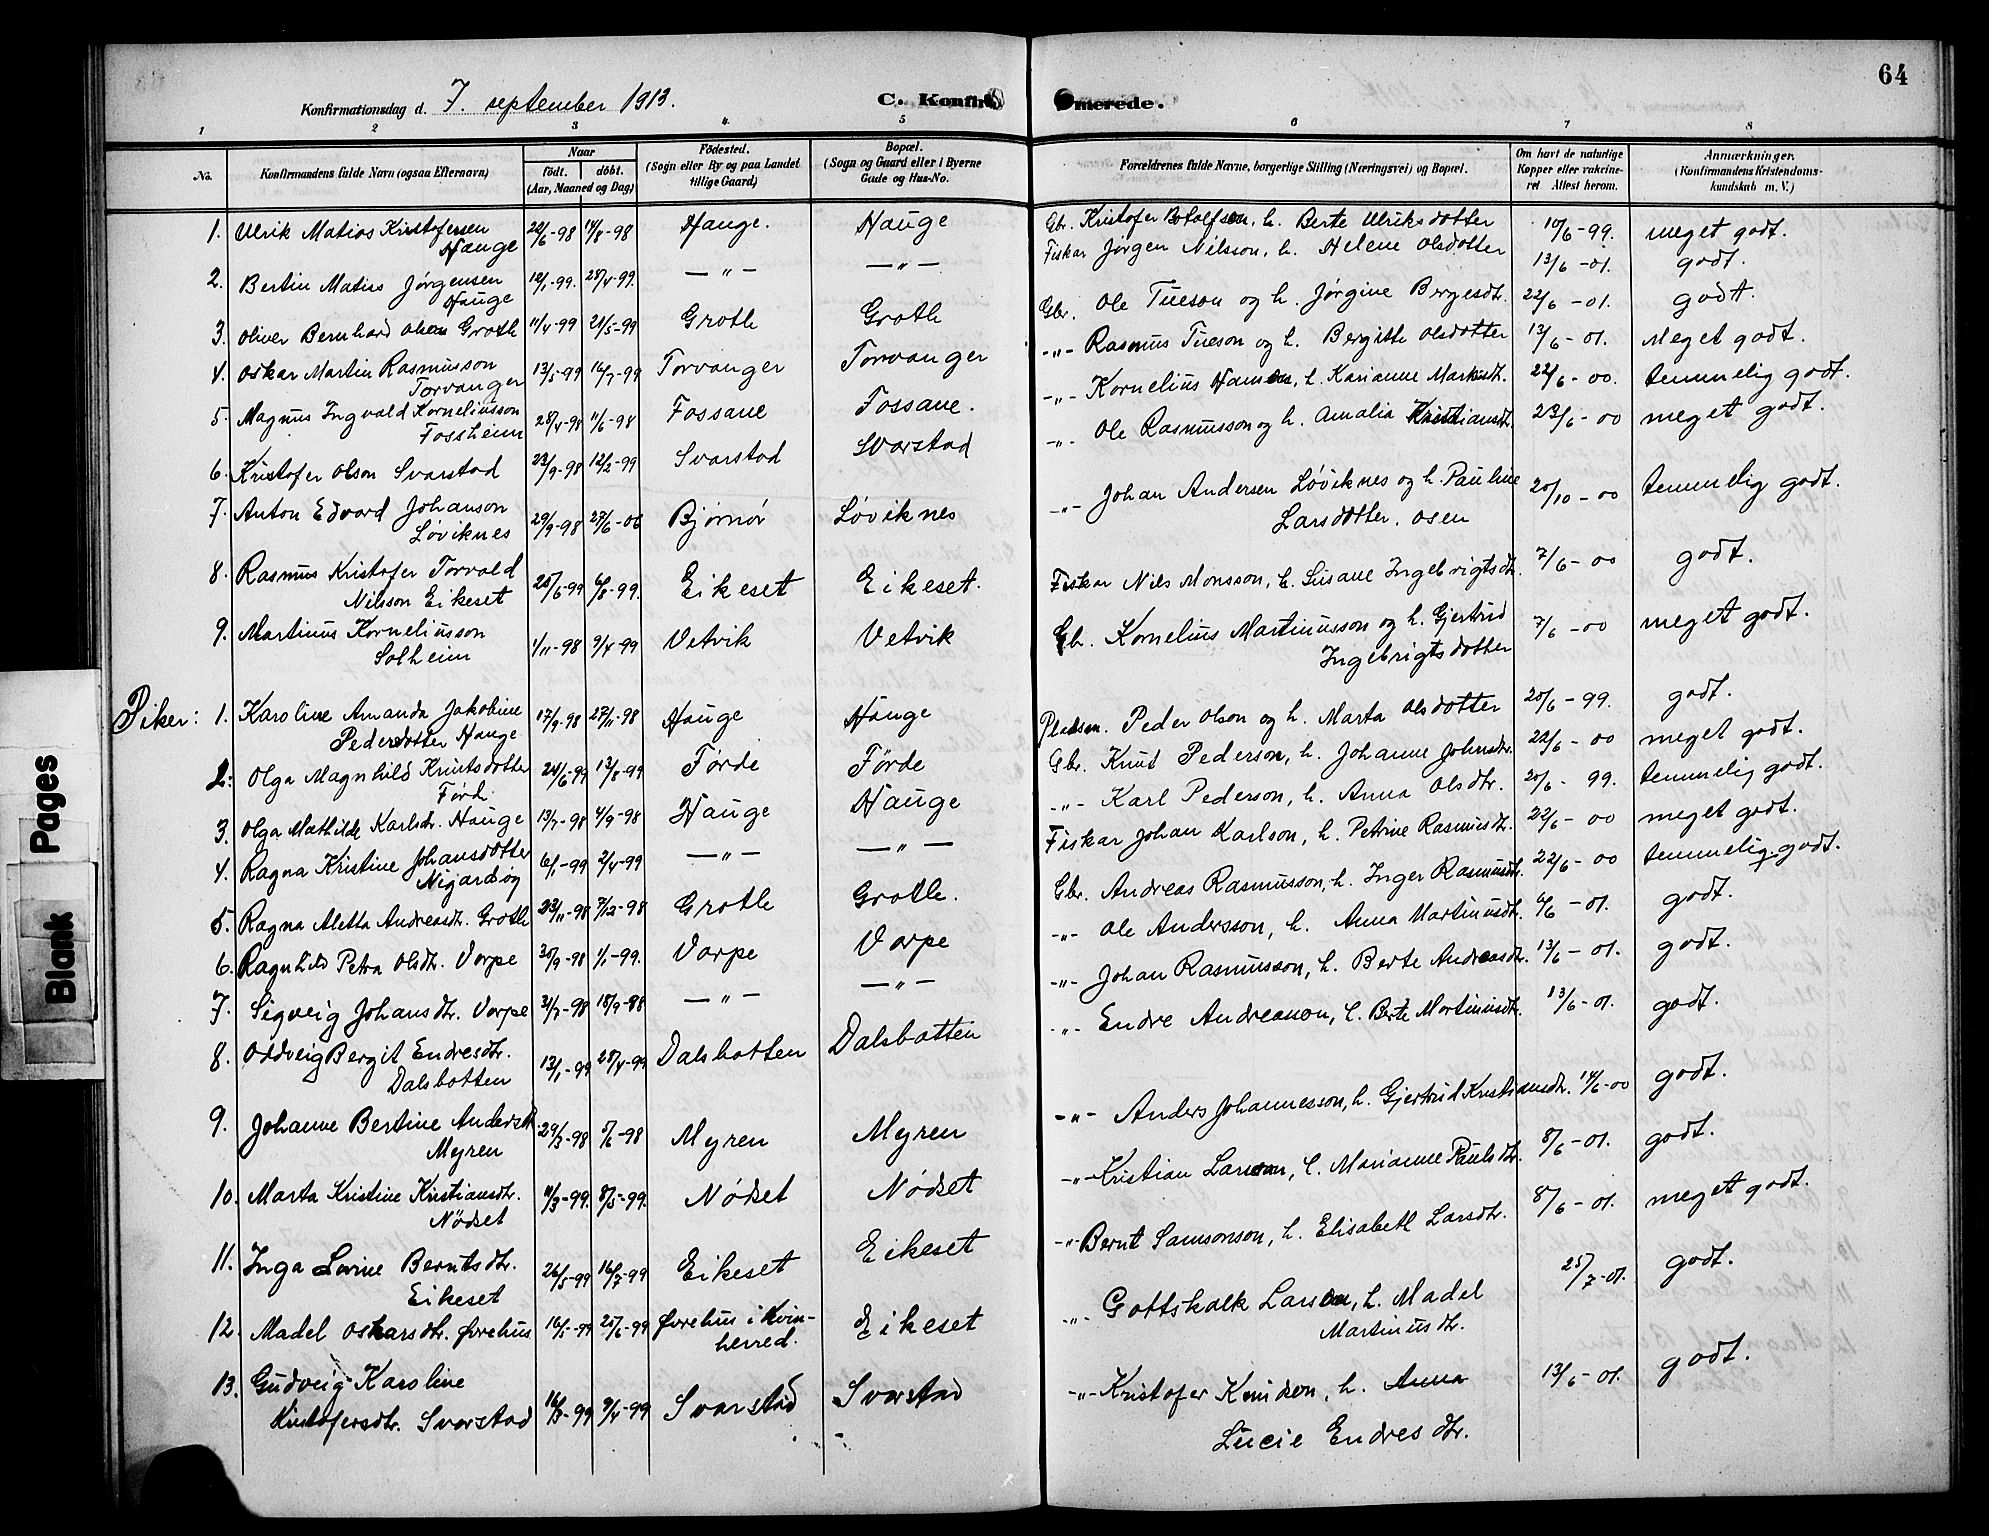 64
Konfirmationsdag d. 7. september 1913.
C. Konfirmerede.
1 2 3 4 5 6 7 8
No.
Konfirmandens fulde Navn (ogsaa Efternavn)
Naar
født. døbt.
(Aar, Maaned og Dag)
Fødested.
(Sogn eller By og paa Landet
tillige Gaard)
Bopæl.
(Sogn og Gaard eller i Byerne
Gade og Hus-No.
Forældrenes fulde Navne, borgerlige Stilling (Næringsvei) og Bopæl.
Om havt de naturlige
Kopper eller vakcine-
ret Attest herom.
Anmærkninger.
(Konfirmandens Kristendoms-
kundskab m. V.)
1. Ulrik Matias Kristofersen 22/6-98 14/8-98 Hauge. Hauge Gbr. Kristofer Botolfsen, h. Berte Ulriksdotter 10/6-99. meget godt.
Hauge
2. Bertin Matias Jørgensen 12/1-99. 28/4-99. —"— —"— Fiskar Jørgen Nilsson, h. Helene Olsdotter 13/6-01. godt.
Hauge
3. Oliver Bernhard Olsen Grotle 11/4-99 21/5-99 Grotle Grotle Gbr. Ole Tueson og h. Jørgine Bergesdtr. 22/6-01. godt.
4. Oskar Martin Rasmusson 13/5-99 16/7-99 Torvanger Torvanger -"- Rasmus Tueson og h. Bergitte Olsdotter 13/6-01. Meget godt.
Torvanger
5. Magnus Ingvald Korneliusson 28/4-98 11/6-98 Fossane Fossane. -"- Kornelius Hansen, h. Karianne Markusdtr. 22/6-00. temmelig godt.
Fossheim
6. Kristofer Olson Svarstad 23/9-98 12/2-99 Svarstad Svarstad -"- Ole Rasmusson og h. Amalia Kristiansdtr. 23/6-00 meget godt.
7. Anton Edvard Johanson 29/9-98 27/6-06 Bjørnør Løviknes -"- Johan Andersen Løviknes og h. Pauline 20/10-00 temmelig godt.
Løviknes Larsdotter. Osen
8. Rasmus Kristofer Torvald 25/6-99 6/8-99. Eikeset Eikeset. Fiskar Nils Monsson, h. Susane Ingebrigtsdtr. 7/6-00 godt.
Nilsson Eikeset
9. Martinus Korneliusson 1/11-98 9/4-99 Vetvik Vetvik Gb. Kornelius Martinusson og h. Gjertrud 7/6-00 meget godt.
Solheim Ingebrigtsdotter
Piker: 1. Karoline Amanda Jakobine 17/9-98 27/11-98 Hauge Hauge Pladsm. Peder Olson og h. Marta Olsdotter 20/6-99. godt.
Pedersdotter Hauge
2. Olga Magnhild Knutsdotter 24/6-99 13/8-99 Førde Førde Gbr. Knut Pederson, h. Johanne Johnsdtr. 22/6-00 meget godt.
Førde
3. Olga Mathilde Karlsdr. Hauge 13/7-98 4/9-98 Hauge Hauge -"- Karl Pederson, h. Anna Olsdtr. 20/6-99. temmelig godt.
4. Ragna Kristine Johansdotter 6/1-99 2/4-99 —"— —"— Fiskar Johan Karlson, h. Petrine Rasmusdtr. 22/6-00 meget godt.
Nigardsøy
5. Ragna Aletta Andreasdtr. Grotle 23/11-98 7/12-98 Grotle Grotle. Gbr. Andreas Rasmusson, h. Inger Rasmusdtr. 22/6-00 temmelig godt.
6. Ragnhild Petra Olsdtr. Varpe 30/9-98 1/1-99. Varpe Varpe -"- Ole Andersson, h. Anna Martinusdtr. 6/6-01. godt.
7. Sigveig Johansdtr. Varpe 31/7-98 18/9-98 —"— —"— -"- Johan Rasmusson, h. Berte Andreasdtr. 13/6-01. godt.
8. Oddveig Bergit Endresdtr. 13/1-99 28/4-99 Dalsbotten Dalsbotten -"- Endre Andreasson, h. Berte Martinusdtr. 13/6-01. godt.
Dalsbotten
9. Johanne Bertine Andersdtr. 29/3-98 5/6-98 Myren Myren -"- Anders Johannesson, h. Gjertrud Kristiansdtr. 14/6-00 godt.
Myren
10. Marta Kristine Kristiansdtr. 11/3-99. 8/5-99. Nødset Nødset -"- Kristian Larsson, h. Marianne Paulsdtr. 8/6-01. godt.
Nödset
11. Inga Lovine Berntsdtr. 26/5-99 16/7-99 Eikeset Eikeset -"- Bernt Samsonson, h. Elisabeth Larsdtr. 8/6-01. meget godt.
Eikeset
12. Madel Oskarsdtr. Øvrehus 16/5-99 25/6-99 Øvrehus i Kvin- Eikeset -"- Gottskalk Larsen, h. Madel 25/7-01. godt.
herred. Martinusdtr.
13. Gudveig Karoline 16/3-99 9/4-99 Svarstad Svarstad -"- Kristofer Knudsen, h. Anna 13/6-01. godt.
Kristofersdtr. Svarstad Lucie Endresdtr.
Blank Pages